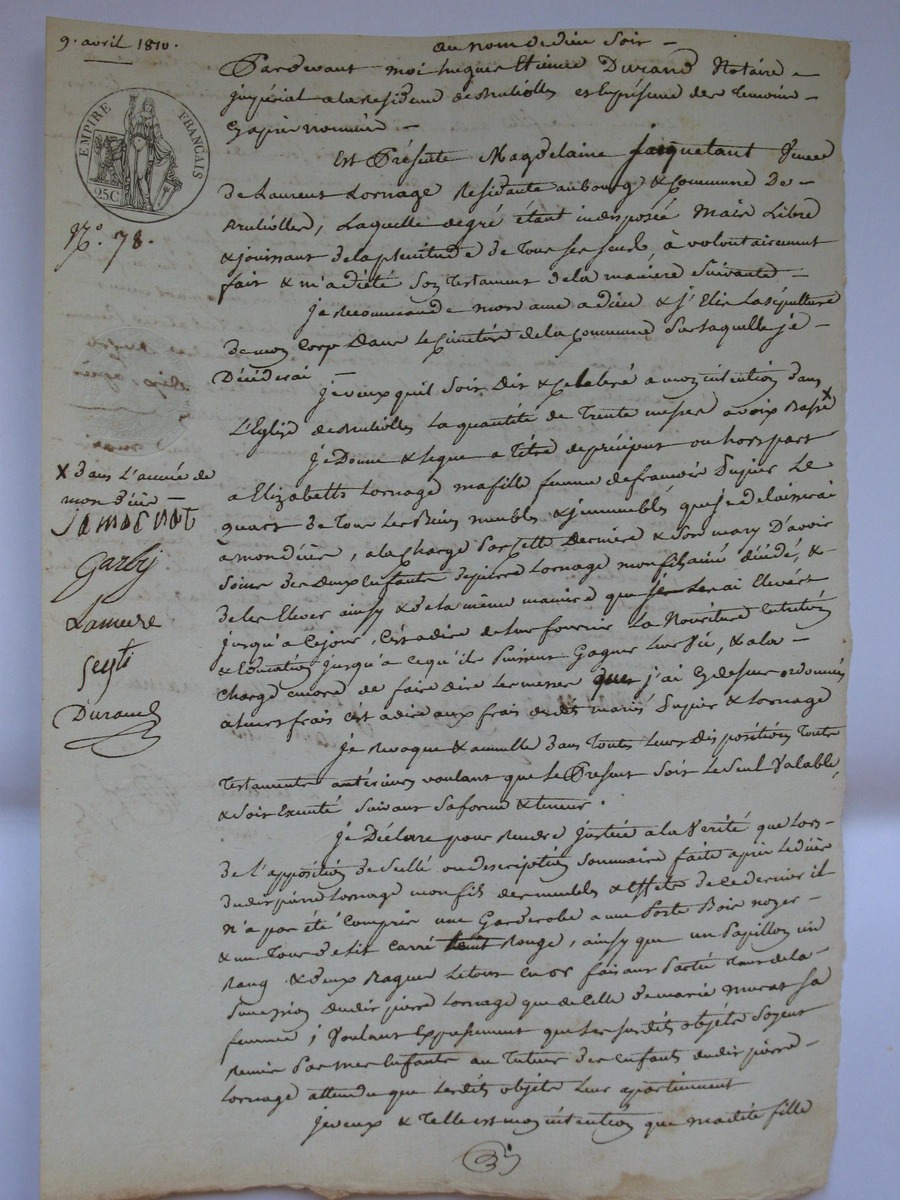 9. avril 1810.
au nom de dieu soit
Pardevant moi hugues Etienne Durand Notaire
impérial a la Residence de Brulliolles et En présence des temoins
Cy après nommés
EMPIRE FRANÇAIS
25C
N.º 78.
Est Présente Magdelaine jacquetant Veuve
de Laurent Lornage Residante au bourg & Commune de
Brulliolles, Laquelle de gré étant indisposée Mais Libre
& jouissant de la plenitude de Tous ses sens à volontairement
fait & m'a dicté Son Testament de la maniere Suivante
je Recommande mon ame a dieu & j'Elis La sépulture
de mon Corps Dans le Cimetiére de la Commune Sur laquelle je
Décéderai
je veux quil Soit Dit & Celebré a mon intention dans
L'Eglise de Brulliolles La quantité de Trente messes a voix basse x
je Donne & legue a Titre de préciput ou hors part
a Elizabeth Lornage ma fille femme de francois Supier Le
quart de Tous Les Biens meubles & jmmeubles que je delaisserai
à mon décès, a la Charge Par Cette Derniere & Son mary D'avoir
Soins des deux Enfants de pierre Lornage mon fils ainé décédé, &
de les Elever ainsy & de la même maniere que je les ai Elevés
jusqu'a Ce jour, C'est a dire de leur fournir La Nourriture Entretien
& Education jusqu'a ce qu'ils Puissent Gagner Leur Vie, & a la
Charge encore de faire dire Les messes que j'ai Cy dessus ordonnés
a leurs frais C'est a dire aux frais desdits mariés Supier & Lornage
je Revoque & annulle dans Toutes Leurs dispositions Touts
Testaments antérieurs voulant que le Présent Soit le Seul Valable,
& Soit Executé Suivant Sa forme & teneur.
je Déclare pour Rendre justice a la Verité que Lors
de l'apposition de Scellé ou description Sommaire faite après le décès
dudit pierre Lornage mon fils des meubles & Effets de ce dernier il
n'a pas été Compris une Garderobe a une Porte Bois noyer
& un Tour de Lit Carré Rouge, ainsy que un Papillon un
Rang & deux Bagues Letout en or faisant Partie Tant de la
Succession dudit pierre Lornage que de Celle de marie murat Sa
femme; Voulant Expressement que les susdits objets Soyent
Remis Par mes Enfants au Tuteur des Enfants dudit pierre
Lornage attendu que Lesdits objets Leur apartiennent
je veux & Telle est mon intention que madite fille
x dans L'année de
mon décès
Garby
Durand